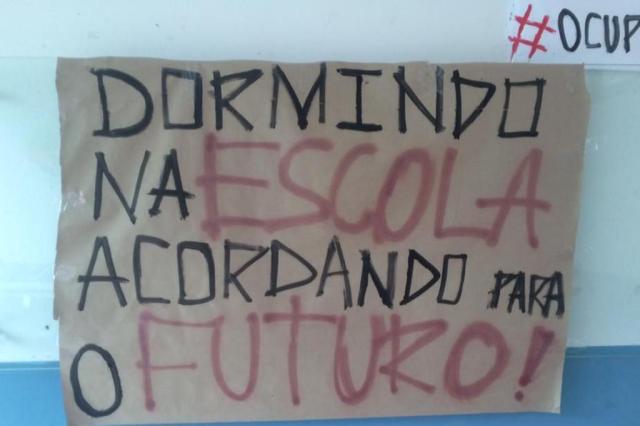 #OCUP
DORMINDO
NA ESCOLA
ACORDANDO PARA
O FUTURO!